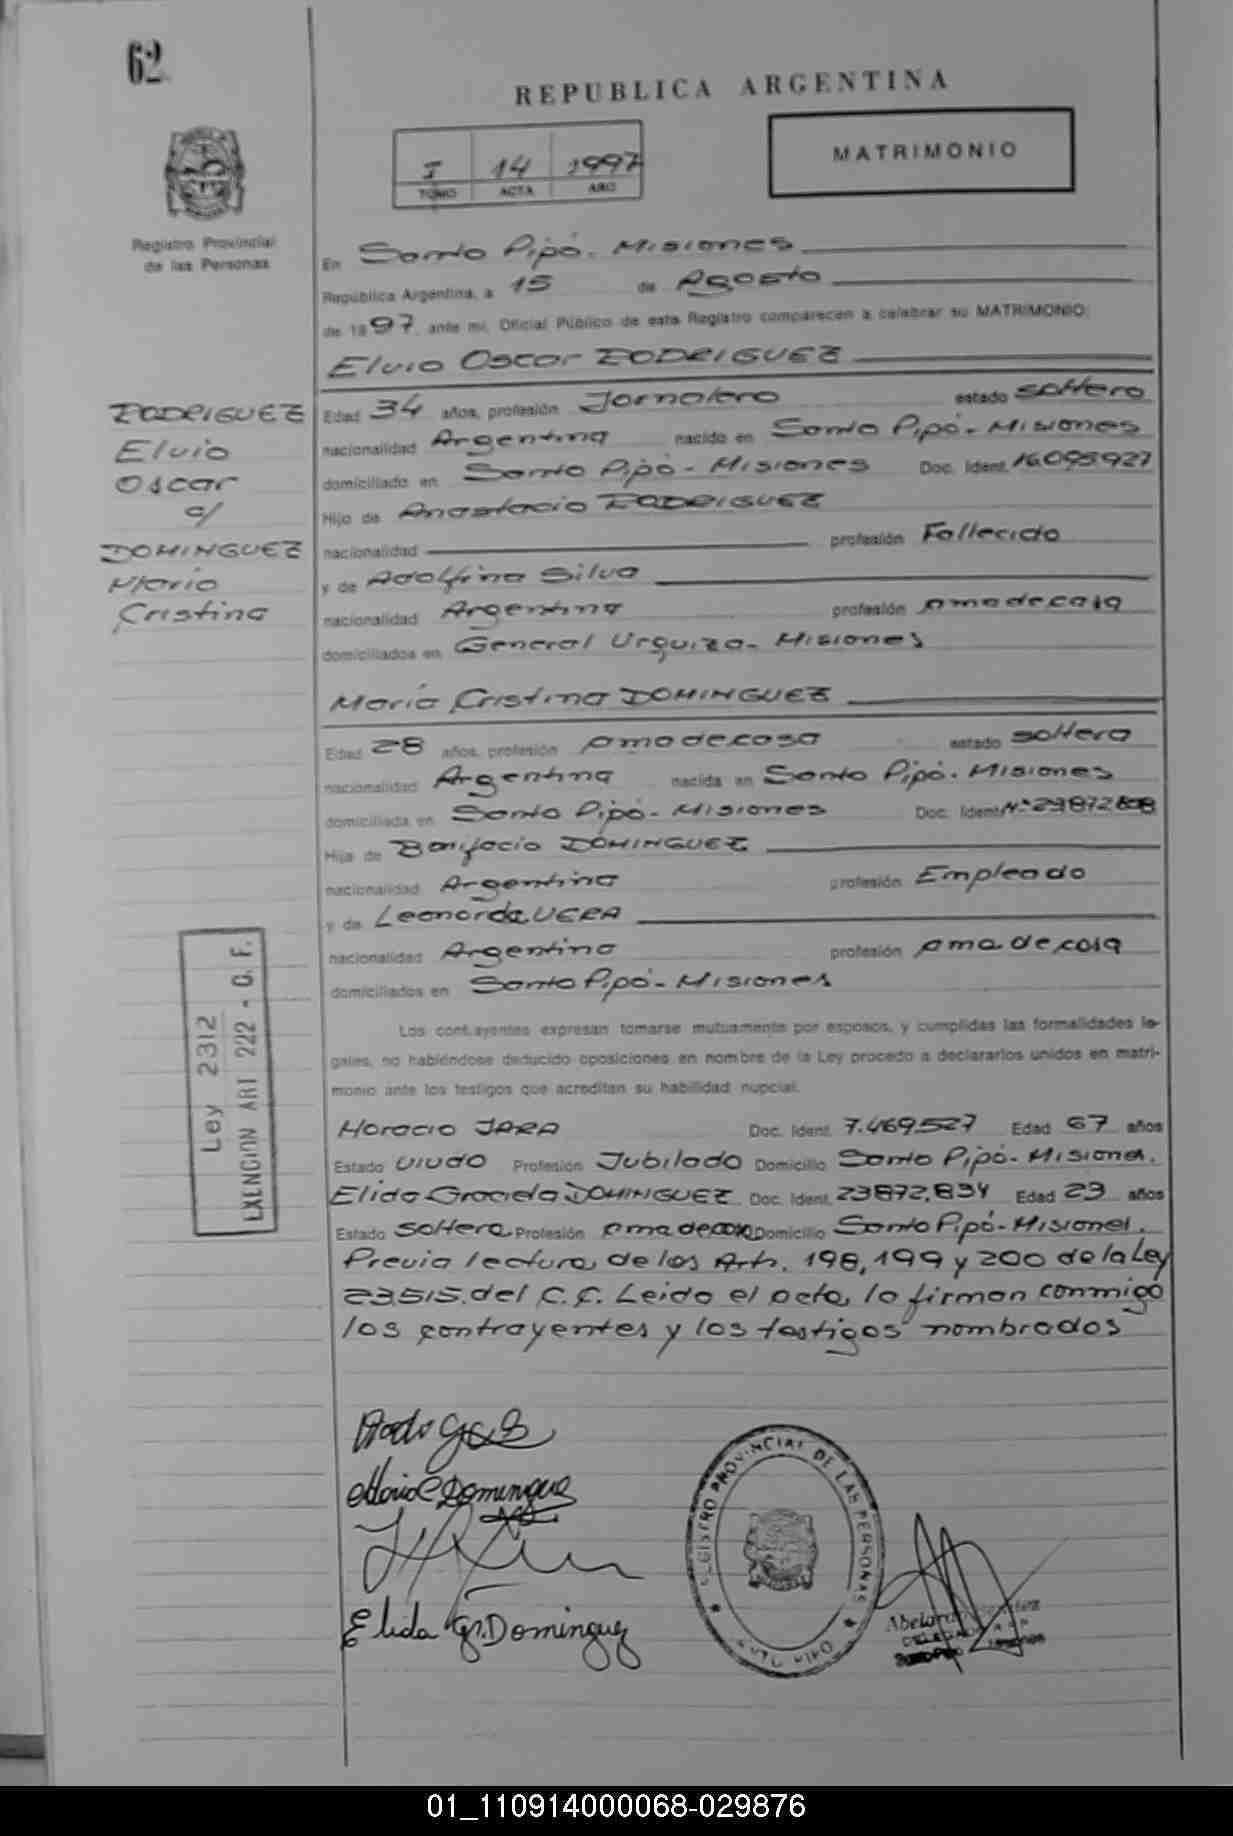 62
REPUBLICA ARGENTINA
MATRIMONIO
I 14 1997
TOMO ACTA AÑO
Registro Provincial
de las Personas
En Santo Pipó. Misiones
República Argentina, a 15 de Agosto
de 1997, ante mi, Oficial Público de este Registro comparecen a celebrar su MATRIMONIO:
Elvio Oscar RODRIGUEZ
RODRIGUEZ
Elvio
Oscar
c/
DOMINGUEZ
María
Cristina
Edad 34 años, profesión Jornalero estado soltero
nacionalidad Argentina nacido en Santo Pipó - Misiones
domiciliado en Santo Pipó - Misiones Doc. Ident. 16.095927
Hijo de Anastacio RODRIGUEZ
nacionalidad profesión Fallecido
y de Adolfina Silva
nacionalidad Argentina profesión ama de casa
domiciliados en General Urquiza - Misiones
María Cristina DOMINGUEZ
Edad 28 años, profesión ama de casa estado soltera
nacionalidad Argentina nacida en Santo Pipó. Misiones
domiciliada en Santo Pipó - Misiones Doc. Ident. Nº
Hija de Bonifacio DOMINGUEZ
nacionalidad Argentina profesión Empleado
y de Leonorda VERA
nacionalidad Argentina profesión ama de casa
domiciliados en Santo Pipó - Misiones
Los contrayentes expresan tomarse mutuamente por esposos, y cumplidas las formalidades le-
gales, no habiéndose deducido oposiciones en nombre de la Ley procedo a declararlos unidos en matri-
monio ante los testigos que acreditan su habilidad nupcial.
Horacio JARA Doc. Ident. 7.469527 Edad 67 años
Estado viudo Profesión Jubilado Domicilio Santo Pipó - Misiones.
Elida Graciela DOMINGUEZ Doc. Ident. 23872.834 Edad 23 años
Estado soltera Profesión ama de casa Domicilio Santo Pipó - Misiones.
Previa lectura de los Arts. 198, 199 y 200 de la Ley
23.515. del C.C. Leido el acta, lo firman conmigo
los contrayentes y los testigos nombrados
Ley 2312
EXENCION ART 222 - C. F.
María C Dominguez
Elida Gr. Dominguez
REGISTRO PROVINCIAL DE LAS PERSONAS
01_110914000068-029876